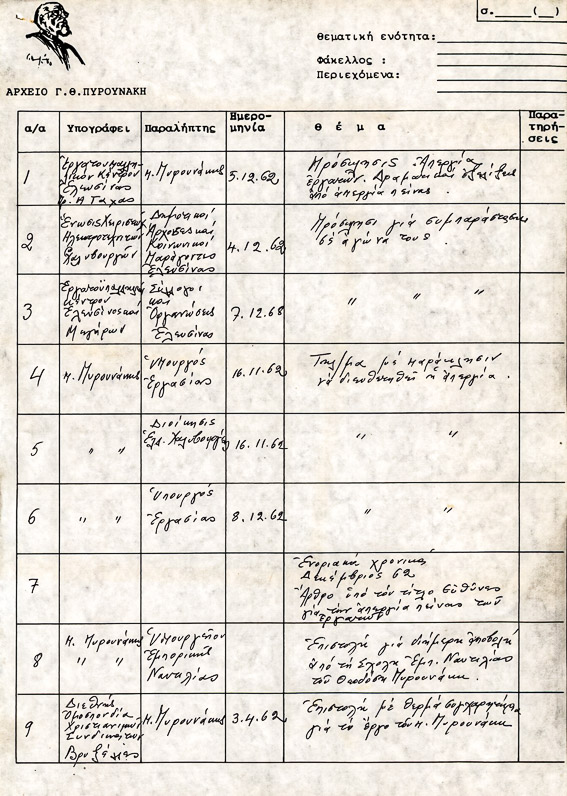 σ.____(__)
θεματική ενότητα:
Φάκελλος :
Περιεχόμενα:
ΑΡΧΕΙΟ Γ.Θ.ΠΥΡΟΥΝΑΚΗ
α/α Υπογράφει Παραλήπτης Ημερο-μηνία θ έ μ α Παρα-τηρή-σεις
1
Ἐργατοϋπαλλη-
λικόν Κέντρον
Ἐλευσίνας
Π. Πυρουνάκης
5.12.62
Πρόσκλησις Ἀπεργία
ἐργατῶν. Δραματικές ἐξελίξεις
ἀπό ἀπεργία πείνας.
2
Ἕνωσις Χειριστῶν
Χαλυβουργῶν
Δημοτικοί
Ἄρχοντες καί
Κοινωνικοί
Παράγοντες
Ἐλευσίνας
4.12.62
Πρόσκλησι γιά συμπαράσταση
σέ ἀγώνα τους.
3
Ἐργατοϋπαλληλικόν
Κέντρον
Ἐλευσῖνος καί
Μεγάρων
Σύλλογοι
καί
Ὀργανώσεις
Ἐλευσίνας
7.12.68
" " "
4
π. Πυρουνάκης
Ὑπουργός
Ἐργασίας
16.11.62
Τηλ/μα μέ παράκλησιν
νά διευθετηθεῖ ἡ ἀπεργία.
5
" "
Διοίκησις
Ἑλ. Χαλυβουργίας
16.11.62
" "
6
" "
Ὑπουργός
Ἐργασίας
8.12.62
" "
7
Ἐνοριακά χρονικά
Δεκέμβριος 62
Ἄρθρο ὑπό τόν τίτλο εὐθύνες
γιά τήν ἀπεργία πείνας τῶν
ἐργατῶν
8
π. Πυρουνάκης
" "
Ὑπουργεῖον
Ἐμπορικῆς
Ναυτιλίας
Ἐπιστολή γιά διήμερη ἀποβολή
ἀπό τή Σχολή Ἐμπ. Ναυτιλίας
τοῦ Θεοδόση Πυρουνάκη
9
Διεθνής
Ὁμοσπονδία
Χριστιανικῶν
Συνδικάτων
Βρυξέλλες
π. Πυρουνάκης
3.4.62
Ἐπιστολή μέ θερμά συγχαρητήρια
γιά τό ἔργο τοῦ π. Πυρουνάκη